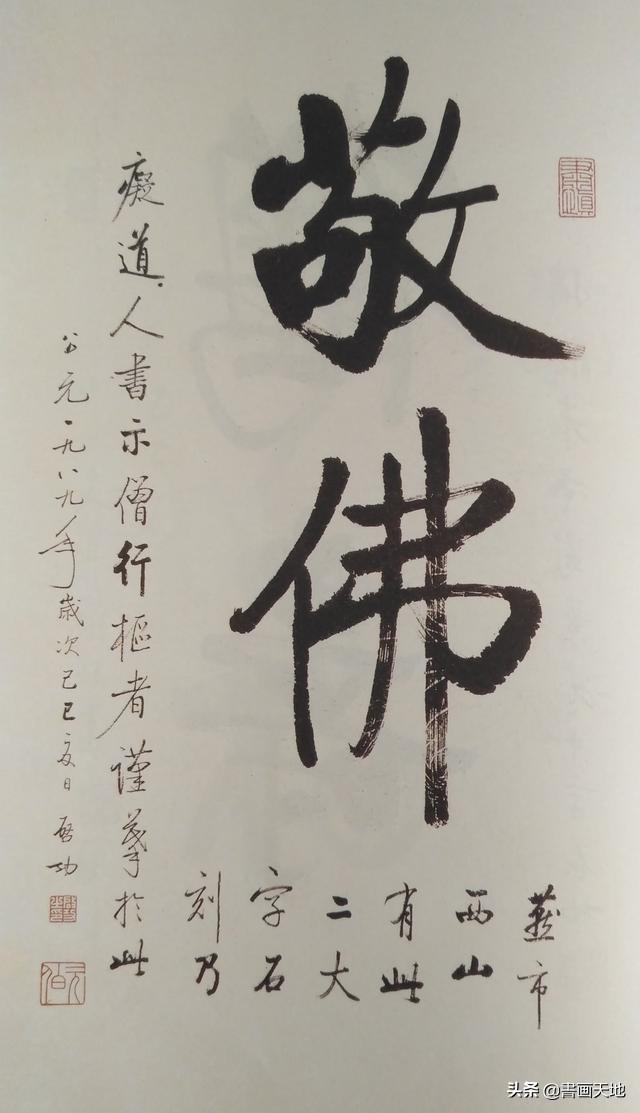 敬佛
燕市
西山
有此
二大
字石
刻乃
癡道人書示僧行樞者謹摹於此
公元一九八九年歲次己巳夏日 启功
元白
头条 @書画天地